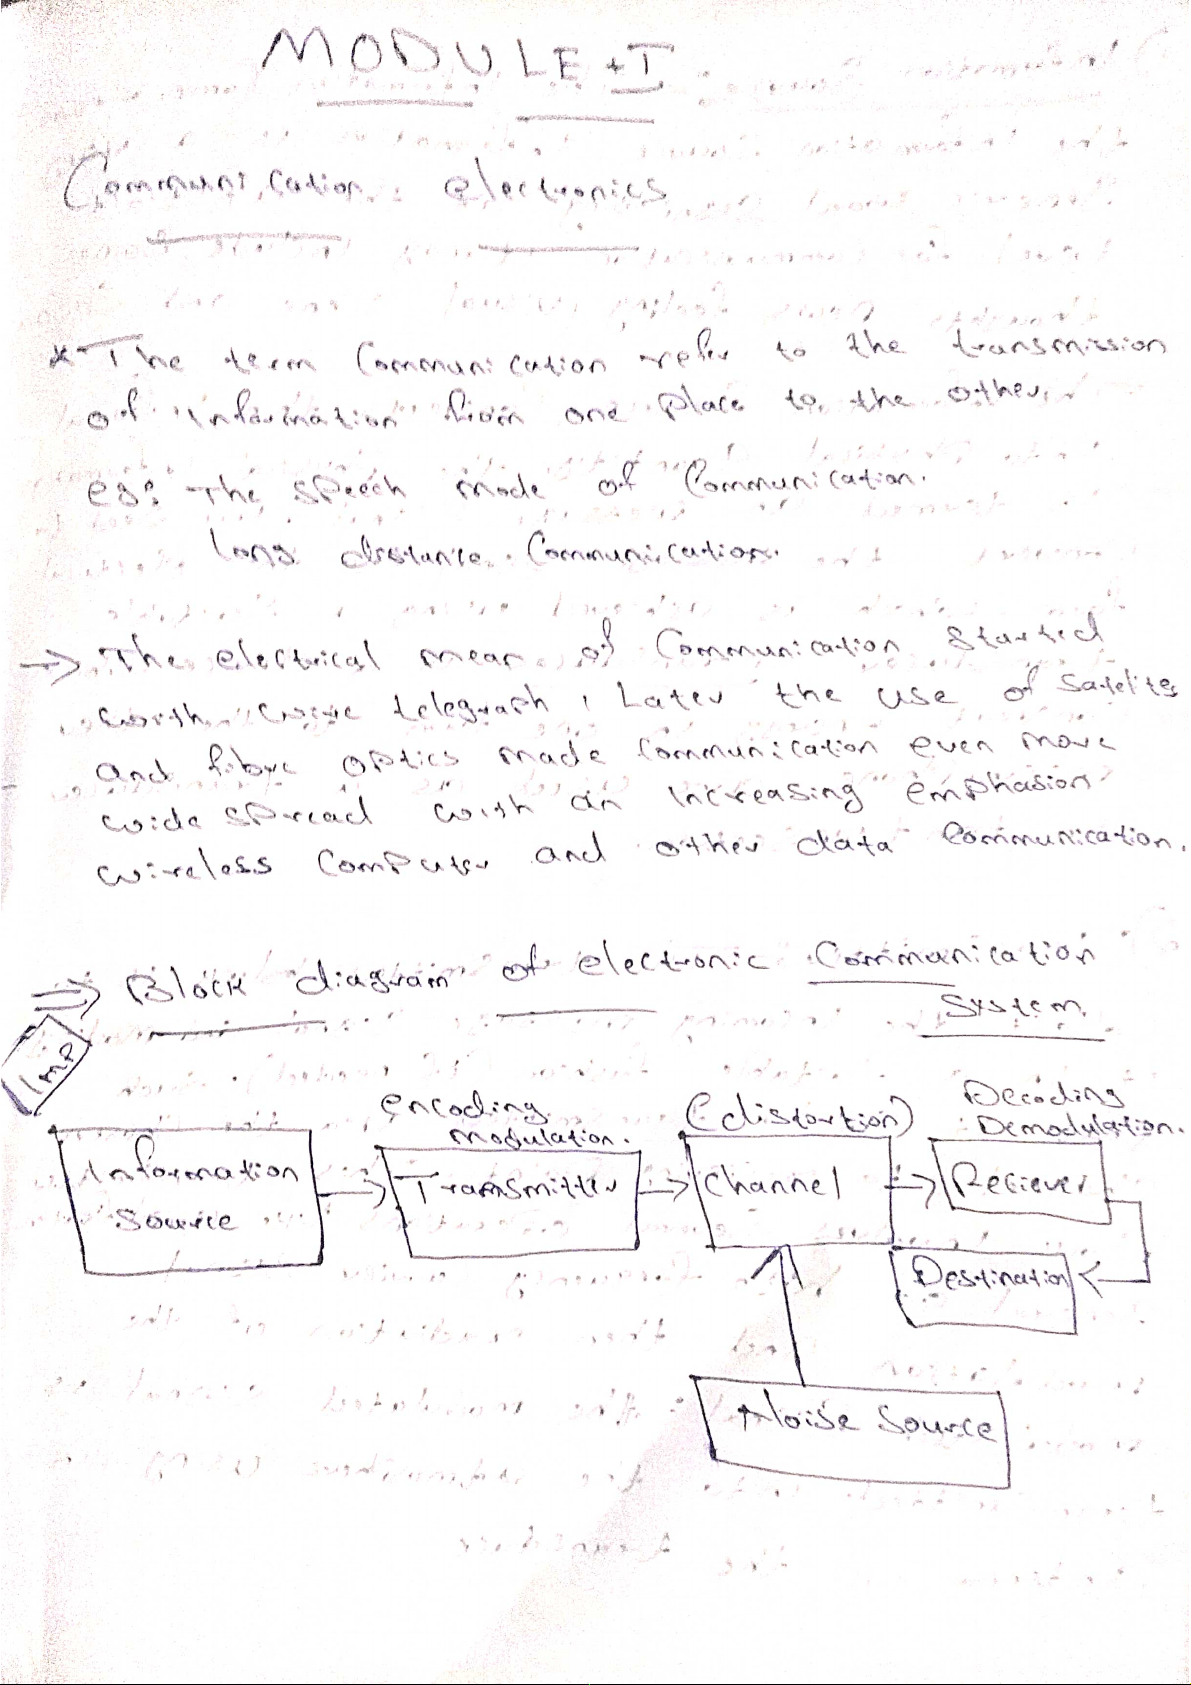 MODULE-I
Communication electronics
* The term Communication refer to the transmission
of information from one place to the other.
eg: The speech mode of Communication.
long distance Communication.
→ The electrical mean of Communication Started
with wire telegraph, Later the use of Satelites
and fibre optics made Communication even more
wide spread with an increasing emphasion
wireless Computer and other data Communication.
⇒ Block diagram of electronic Communication
System
IMP
encoding
modulation.
(distortion)
Decoding
Demodulation.
Information
Source
Transmitter
Channel
Reciever
Destination
Noise Source